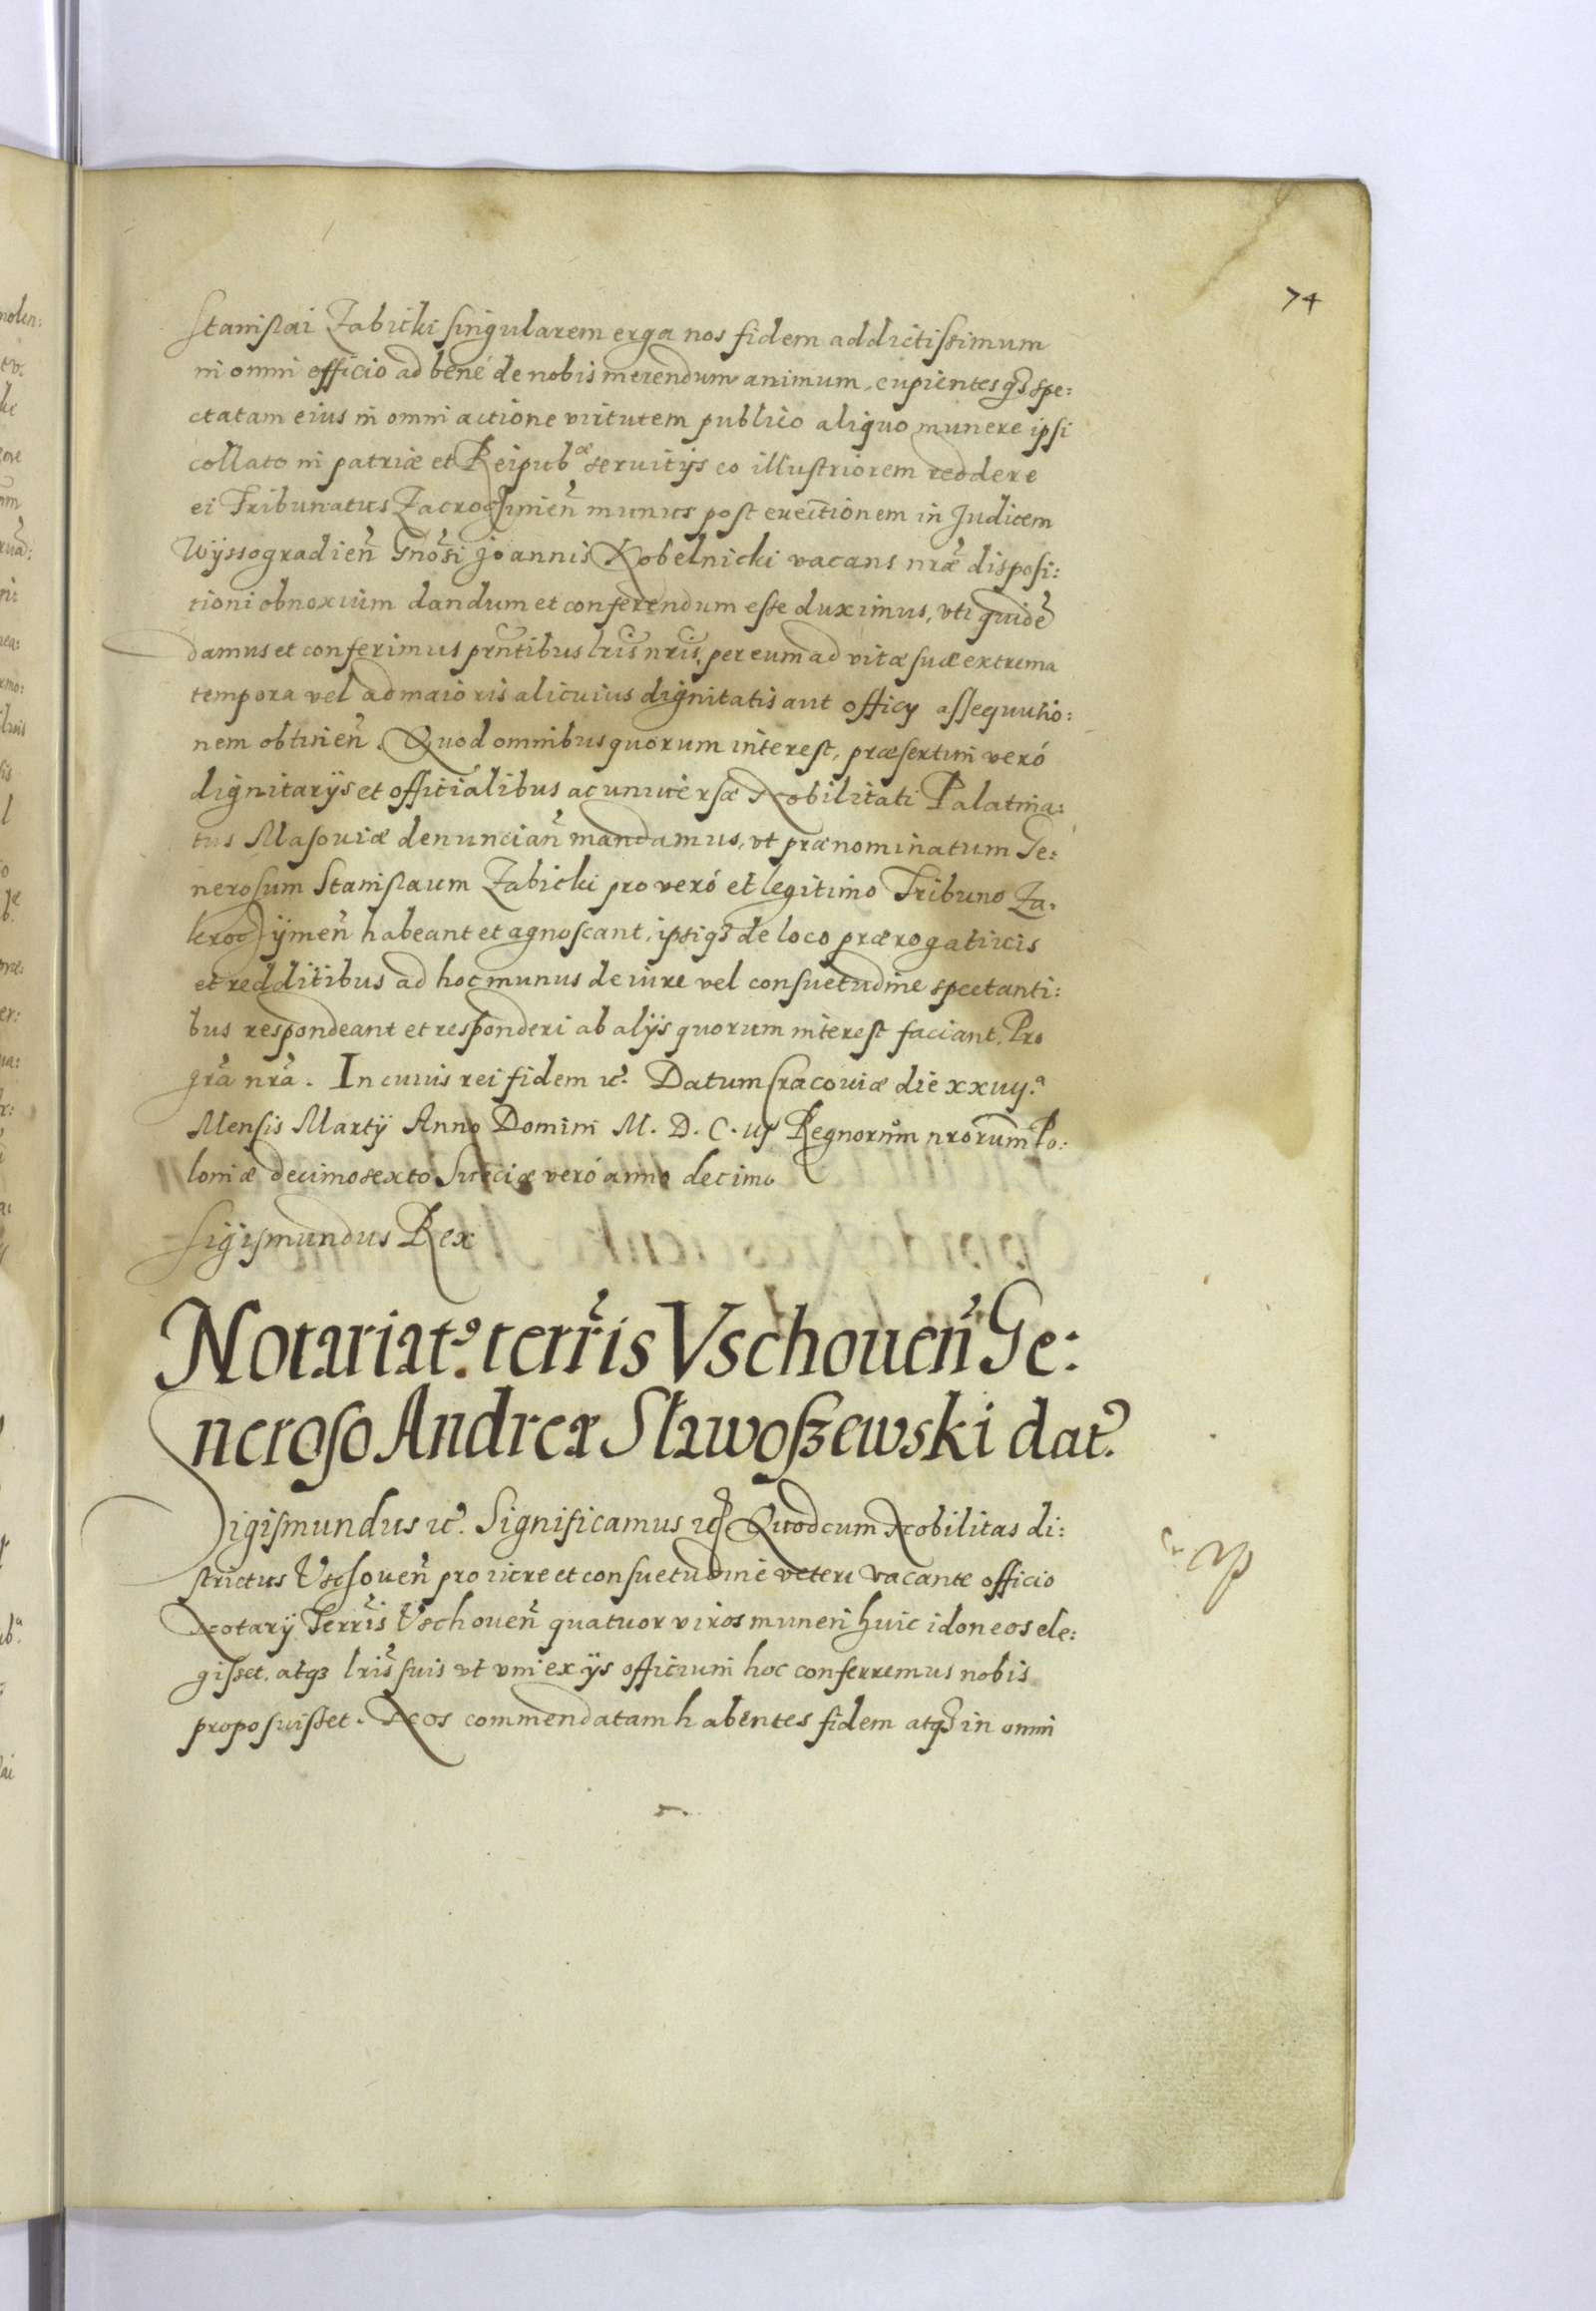 74
Stanislai Zabicki singularem erga nos fidem addictissimum
in omni officio ad bene de nobis merendum animum, cupientes q3 spe:
ctatam eius in omni actione virtutem publico aliquo munere ipsi
collato in patriæ et Reipubæ seruitijs eo illustriorem reddere
ei Tribunatus Zacrocʒimen̄ munus post euectionem in Judicem
Wyssogradien̄ Gnosi Joannis Kobelnicki vacans nræ disposi:
tioni obnoxium dandum et conferendum esse duximus, vti quidē
damus et conferimus pn̄tibus lris nris, per eum ad vitæ suæ extrema
tempora vel ad maioris alicuius dignitatis aut officij assequutio:
nem obtinen̄. Quod omnibus quorum interest, præsertim veró
dignitarijs et officialibus ac uniuersæ Nobilitati Palatina:
tus Masouiæ denuncian̄ mandamus, vt prænominatum Ge:
nerosum Stanislaum Zabicki pro veró et legitimo Tribuno Za:
krocʒymen̄ habeant et agnoscant, ipsiq3 de loco prærogatiuis
et redditibus ad hoc munus de iure vel consuetudine spectanti:
bus respondeant et responderi ab alijs quorum interest faciant. Pro
gra nra. In cuius rei fidem etc. Datum Cracouiæ die xxvij.a
Mensis Martij Anno Domini M. D. C. iij Regnorum nrorum Po:
loniæ decimosexto Sueciæ veró anno decimo
Sigismundus Rex
Notariat9 terris Vschouen̄ Ge:
neroso Andreæ Sławoszewski dat9.
Sigismundus etc. Significamus etc Quod cum Nobilitas di:
strictus Vschouen̄ pro iure et consuetudine veteri vacante officio
Notarij Terris Vschouen̄ quatuor viros muneri huic idoneos ele:
gisset. atq3 lris suis vt vni ex ijs officium hoc conferremus nobis
proposuisset. Nos commendatam habentes fidem atq3 in omni